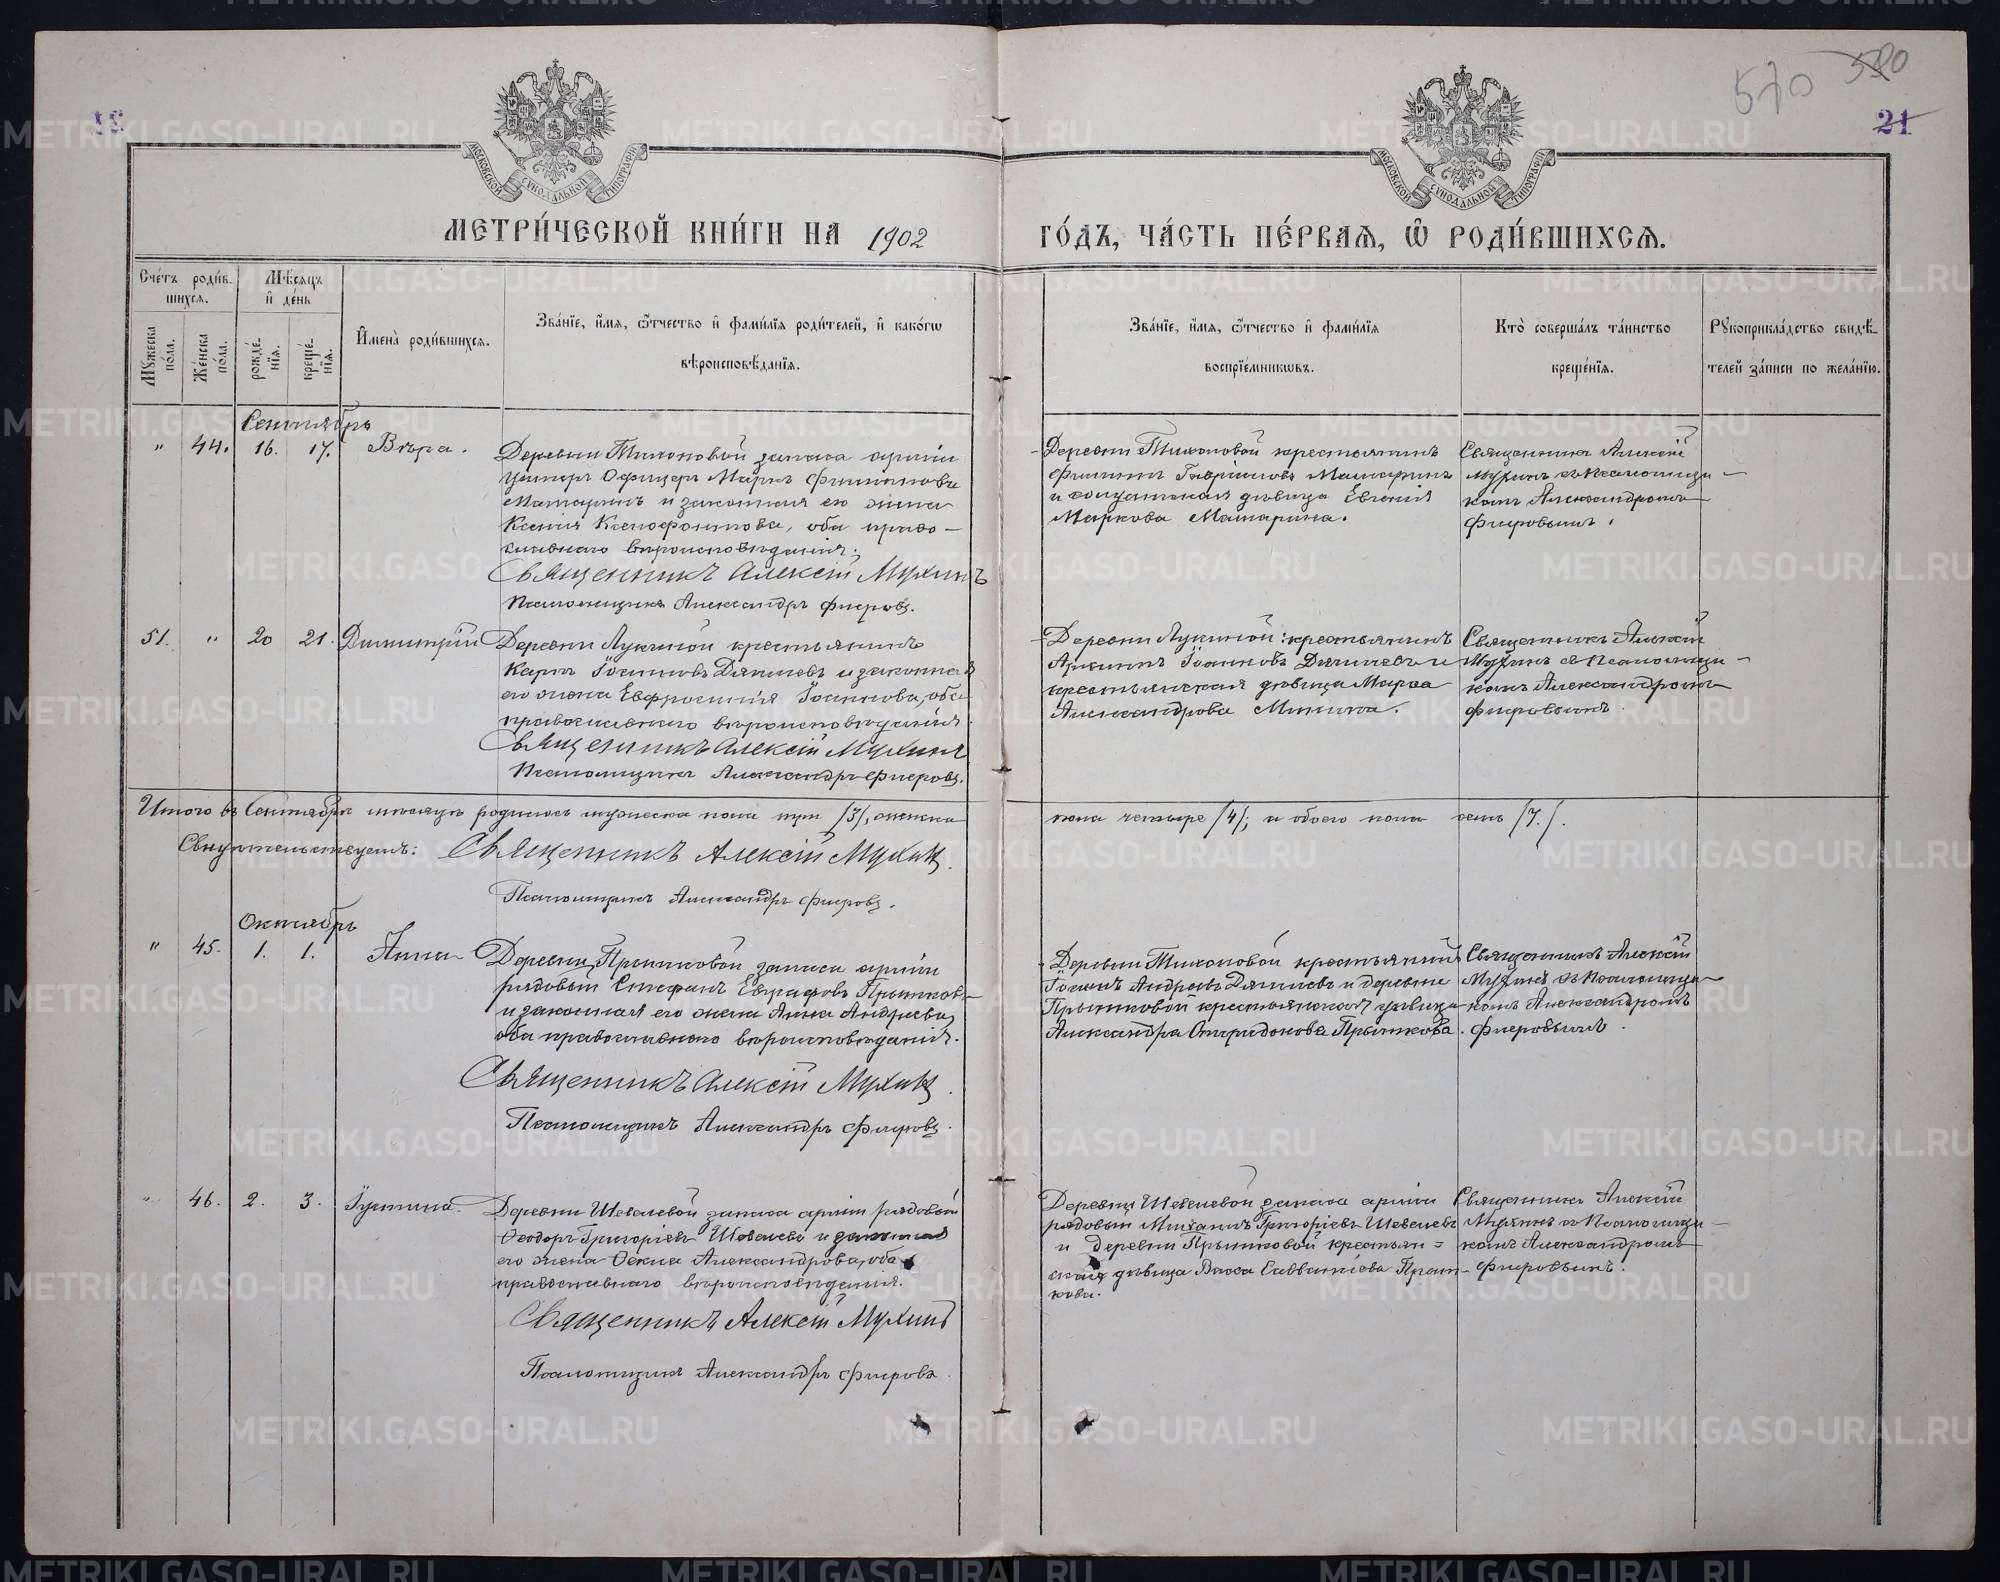 570 590
21
МОСКОВСКОЙ СУНОДАЛЬНОЙ ТИПОГРАФІИ
МОСКОВСКОЙ СУНОДАЛЬНОЙ ТИПОГРАФІИ
МЕТРИ́ЧЕСКОЙ КНИ́ГИ НА 1902 ГО́ДЪ, ЧА́СТЬ ПЕ́РВАЯ, Ѡ РОДИ́ВШИХСЯ.
Сче́тъ роди́в-
шихся.
Мѣ́сяцъ
и де́нь
Мꙋ́жеска по́ла.
Же́нска по́ла.
рожде́-нїя.
креще́-нїя.
И҆мена̀ роди́вшихся.
Зва́нїе, и҆́мя, ѻ҆́тчество и҆ фами́лїя роди́телей, и҆ како́гѡ
вѣроисповѣ́данїя.
Зва́нїе, и҆́мя, ѻ҆́тчество и҆ фами́лїя
воспрїе́мникѡвъ.
Кто̀ соверша́лъ та́инство
креще́нїя.
Рꙋкоприкла́дство свидѣ́-
телей за́писи по жела́нїю.
Сентябрь
" 44. 16. 17. Вѣра.
Деревни Тихоновой запаса арміи
Унтеръ Офицеръ Маркъ Филипповъ
Матаринъ и законная его жена
Ксенія Ксенофонтова, оба право-
славнаго вѣроисповѣданія.
Священникъ Алексій Мухинъ
Псаломщикъ Александръ Фигровъ.
Деревни Тихоновой крестьянинъ
Филиппъ Гавріиловъ Матаринъ
и солдатская дѣвица Евгенія
Маркова Матарина.
Священникъ Алексій
Мухинъ съ Псаломщи-
комъ Александромъ
Фигровымъ.
51. " 20 21. Димитрій
Деревни Лукиной крестьянинъ
Карпъ Іоанновъ Дягилевъ и законная
его жена Евфросинія Іоаннова, оба
православнаго вѣроисповѣданія.
Священникъ Алексій Мухинъ
Псаломщикъ Александръ Фигровъ.
Деревни Лукиной: крестьянинъ
Іоанновъ Дягилевъ и
крестьянская дѣвица Марѳа
Александрова Минина.
Священникъ Алексій
Мухинъ съ Псаломщи-
комъ Александромъ
Фигровымъ.
Итого въ Сентябрѣ мѣсяцѣ родилось мужеска пола три /3/, женска
пола четыре /4/; и обоего пола семь /7./.
Свидѣтельствуемъ: Священникъ Алексій Мухинъ.
Псаломщикъ Александръ Фигровъ.
Октябрь
" 45. 1. 1. Анна
Деревни Прытковой запаса арміи
рядовый Стефанъ Евграфовъ Прытковъ
и законная его жена Анна Андреева,
оба православнаго вѣроисповѣданія.
Священникъ Алексій Мухинъ.
Псаломщикъ Александръ Фигровъ.
Деревни Тихоновой крестьянинъ
Іоаннъ Андреевъ Дягилевъ и деревни
Прытковой крестьянская дѣвица
Александра Спиридонова Прыткова.
Священникъ Алексій
Мухинъ съ Псаломщи-
комъ Александромъ
Фигровымъ.
" 46. 2. 3. Іустина.
Деревни Шевелевой запаса арміи рядовый
Ѳеодоръ Григорьевъ Шевелевъ и законная
его жена Ѳекла Александрова, оба
православнаго вѣроисповѣданія.
Священникъ Алексій Мухинъ
Псаломщикъ Александръ Фигровъ.
Деревни Шевелевой запаса арміи
рядовый Михаилъ Григоріевъ Шевелевъ
и деревни Прытковой крестьян-
ская дѣвица Васса Савватіева Прыт-
кова.
Священникъ Алексій
Мухинъ съ Псаломщи-
комъ Александромъ
Фигровымъ.
METRIKI.GASO-URAL.RU